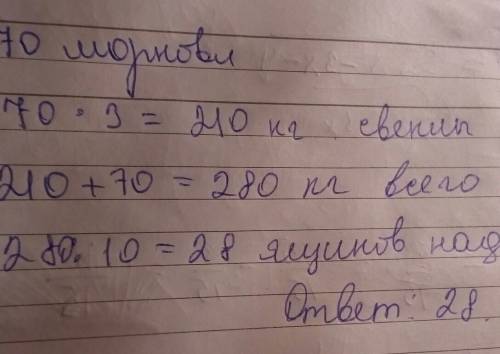 70 морковы
70 • 3 = 210 кг свеклы
210 + 70 = 280 кг всего
280 : 10 = 28 ящиков над
Ответ: 28.